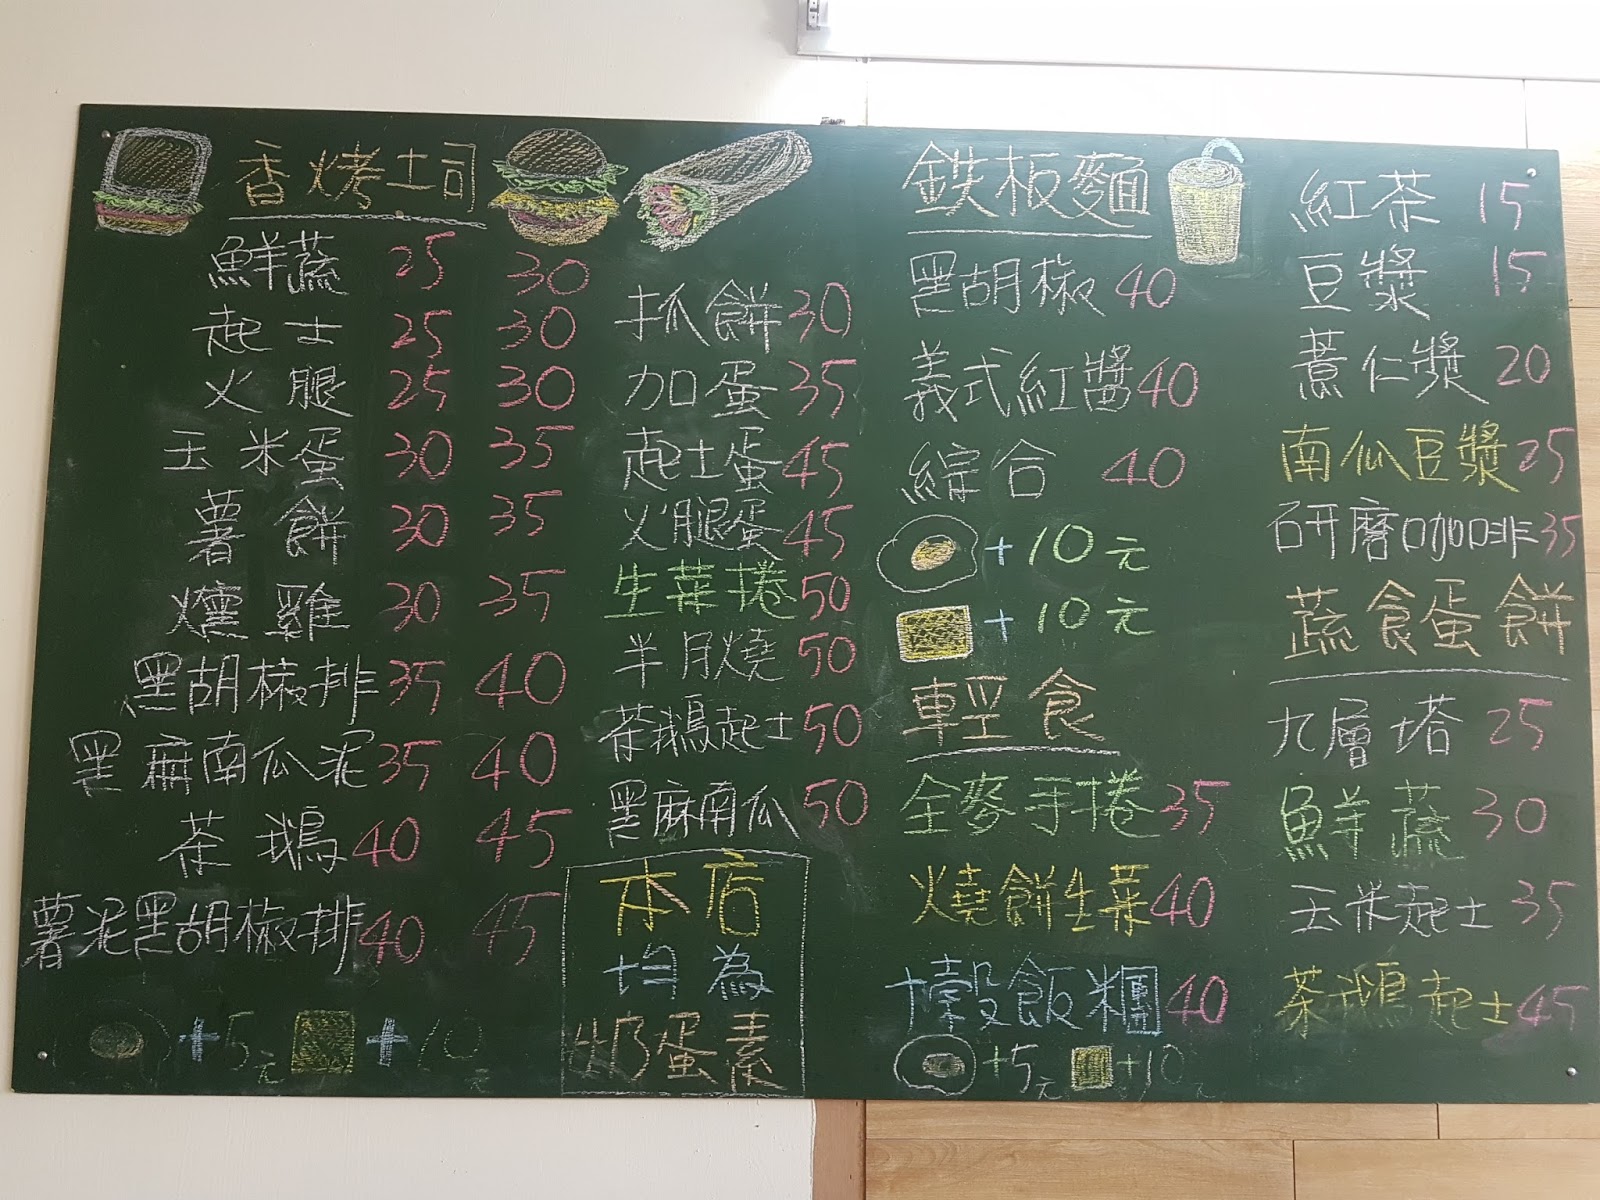 香烤土司
鮮蔬 25 30
起士 25 30
火腿 25 30
玉米蛋 30 35
薯餅 30 35
燻雞 30 35
黑胡椒排 35 40
黑麻南瓜泥 35 40
茶鵝 40 45
薯泥黑胡椒排 40 45
+5元 +10元
抓餅 30
加蛋 35
起士蛋 45
火腿蛋 45
生菜捲 50
半月燒 50
茶鵝起士 50
黑麻南瓜 50
本店
均為
奶蛋素
鉄板麵
黑胡椒 40
義式紅醬 40
綜合 40
+10元
+10元
輕食
全麥手捲 35
燒餅生菜 40
十穀飯糰 40
+5元 +10元
紅茶 15
豆漿 15
薏仁漿 20
南瓜豆漿 25
研磨咖啡 35
蔬食蛋餅
九層塔 25
鮮蔬 30
玉米起士 35
茶鵝起士 45